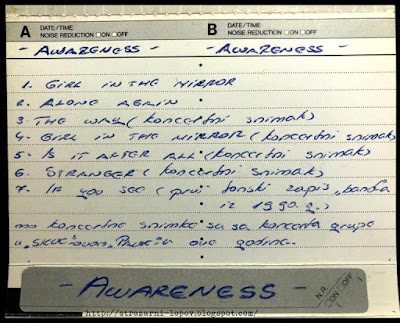 A DATE/TIME NOISE REDUCTION □ON □OFF B DATE/TIME NOISE REDUCTION □ON □OFF
- AWARENESS - - AWARENESS -
1. GIRL IN THE MIRROR
2. ALONE AGAIN
3. THE WALL (koncertni snimak)
4. GIRL IN THE MIRROR (koncertni snimak)
5. IS IT AFTER ALL (koncertni snimak)
6. STRANGER (koncertni snimak)
7. IF YOU SEE (prvi tonski zapis banda
iz 1990. g.)
koncertne snimke su sa koncerta grupe
u „SKUC" ove godine.
- AWARENESS -
N.R. □ON □OFF
http://strazarni-lopov.blogspot.com/